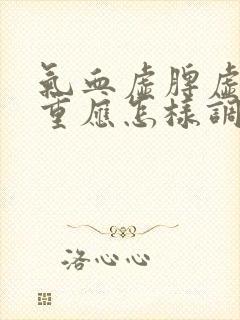 氣血虛脾虛
重應怎樣調
洛心心